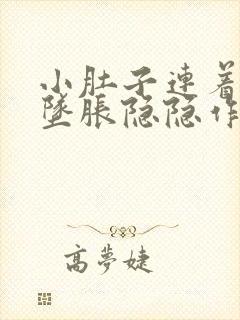 小肚子連着
墜脹隐隐作
高夢婕